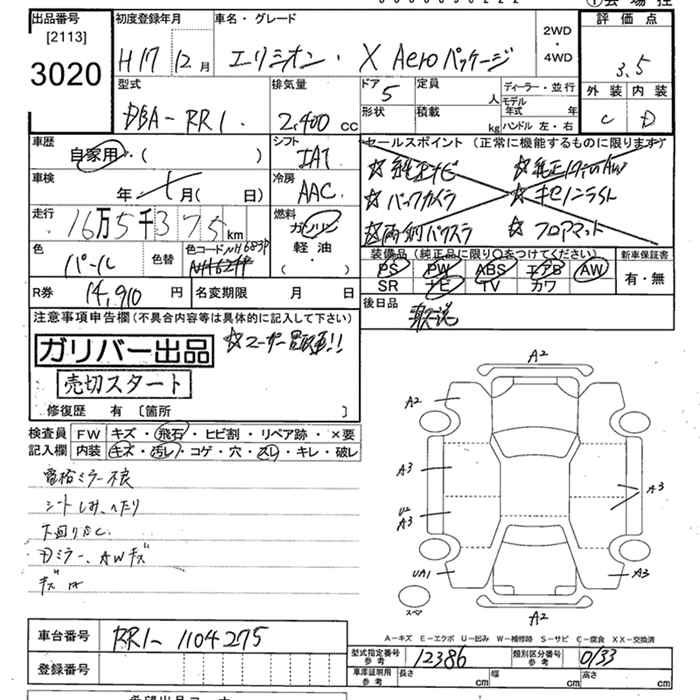 出品番号 初度登録年月 車名・グレード 評価点
[2113]
3020 H17 12月 エリシオン・X Aeroパッケージ 2WD・4WD 3.5
外装 内装
C D
型式 排気量 ドア 定員 ディーラー・並行
DBA-RR1 2,400cc 5 人 モデル年式 年
形状 積載 kg ハンドル 左・右
車歴 シフト セールスポイント(正常に機能するものに限ります)
自家用・( ) IAT ☆純正ナビ
車検 年 月( 日) 冷房 AAC ☆バックカメラ
走行 16万5千375km 燃料 ガソリン ☆フロアマット
軽油・( )
色 パール 色替 色コード NH683P
装備品(純正品に限り○をつけてください) 新車保証書
PS PW ABS エアB AW 有・無
SR ナビ TV カワ
R券 14,910円 名変期限 月 日 後日品
注意事項申告欄(不具合内容等は具体的に記入して下さい)
ガリバー出品 ☆ユーザー買取車!!
売切スタート
修復歴 有 [箇所 ]
検査員 FW キズ・飛石・ヒビ割・リペア跡・×要
記入欄 内装 キズ・汚レ・コゲ・穴・スレ・キレ・破レ
電格ミラー不良
シートしみ、へたり
下回りサビ
ミラー、AWキズ
A2
A2
A3
U2
A3
A3
UA1
A3
スペア
A2
A-キズ E-エクボ U-凹み W-補修跡 S-サビ C-腐食 XX-交換済
車台番号 RR1-1104275
型式指定番号 参考 12386 類別区分番号 参考 0133
登録番号 車庫証明用 参考 長さ cm 幅 cm 高さ cm